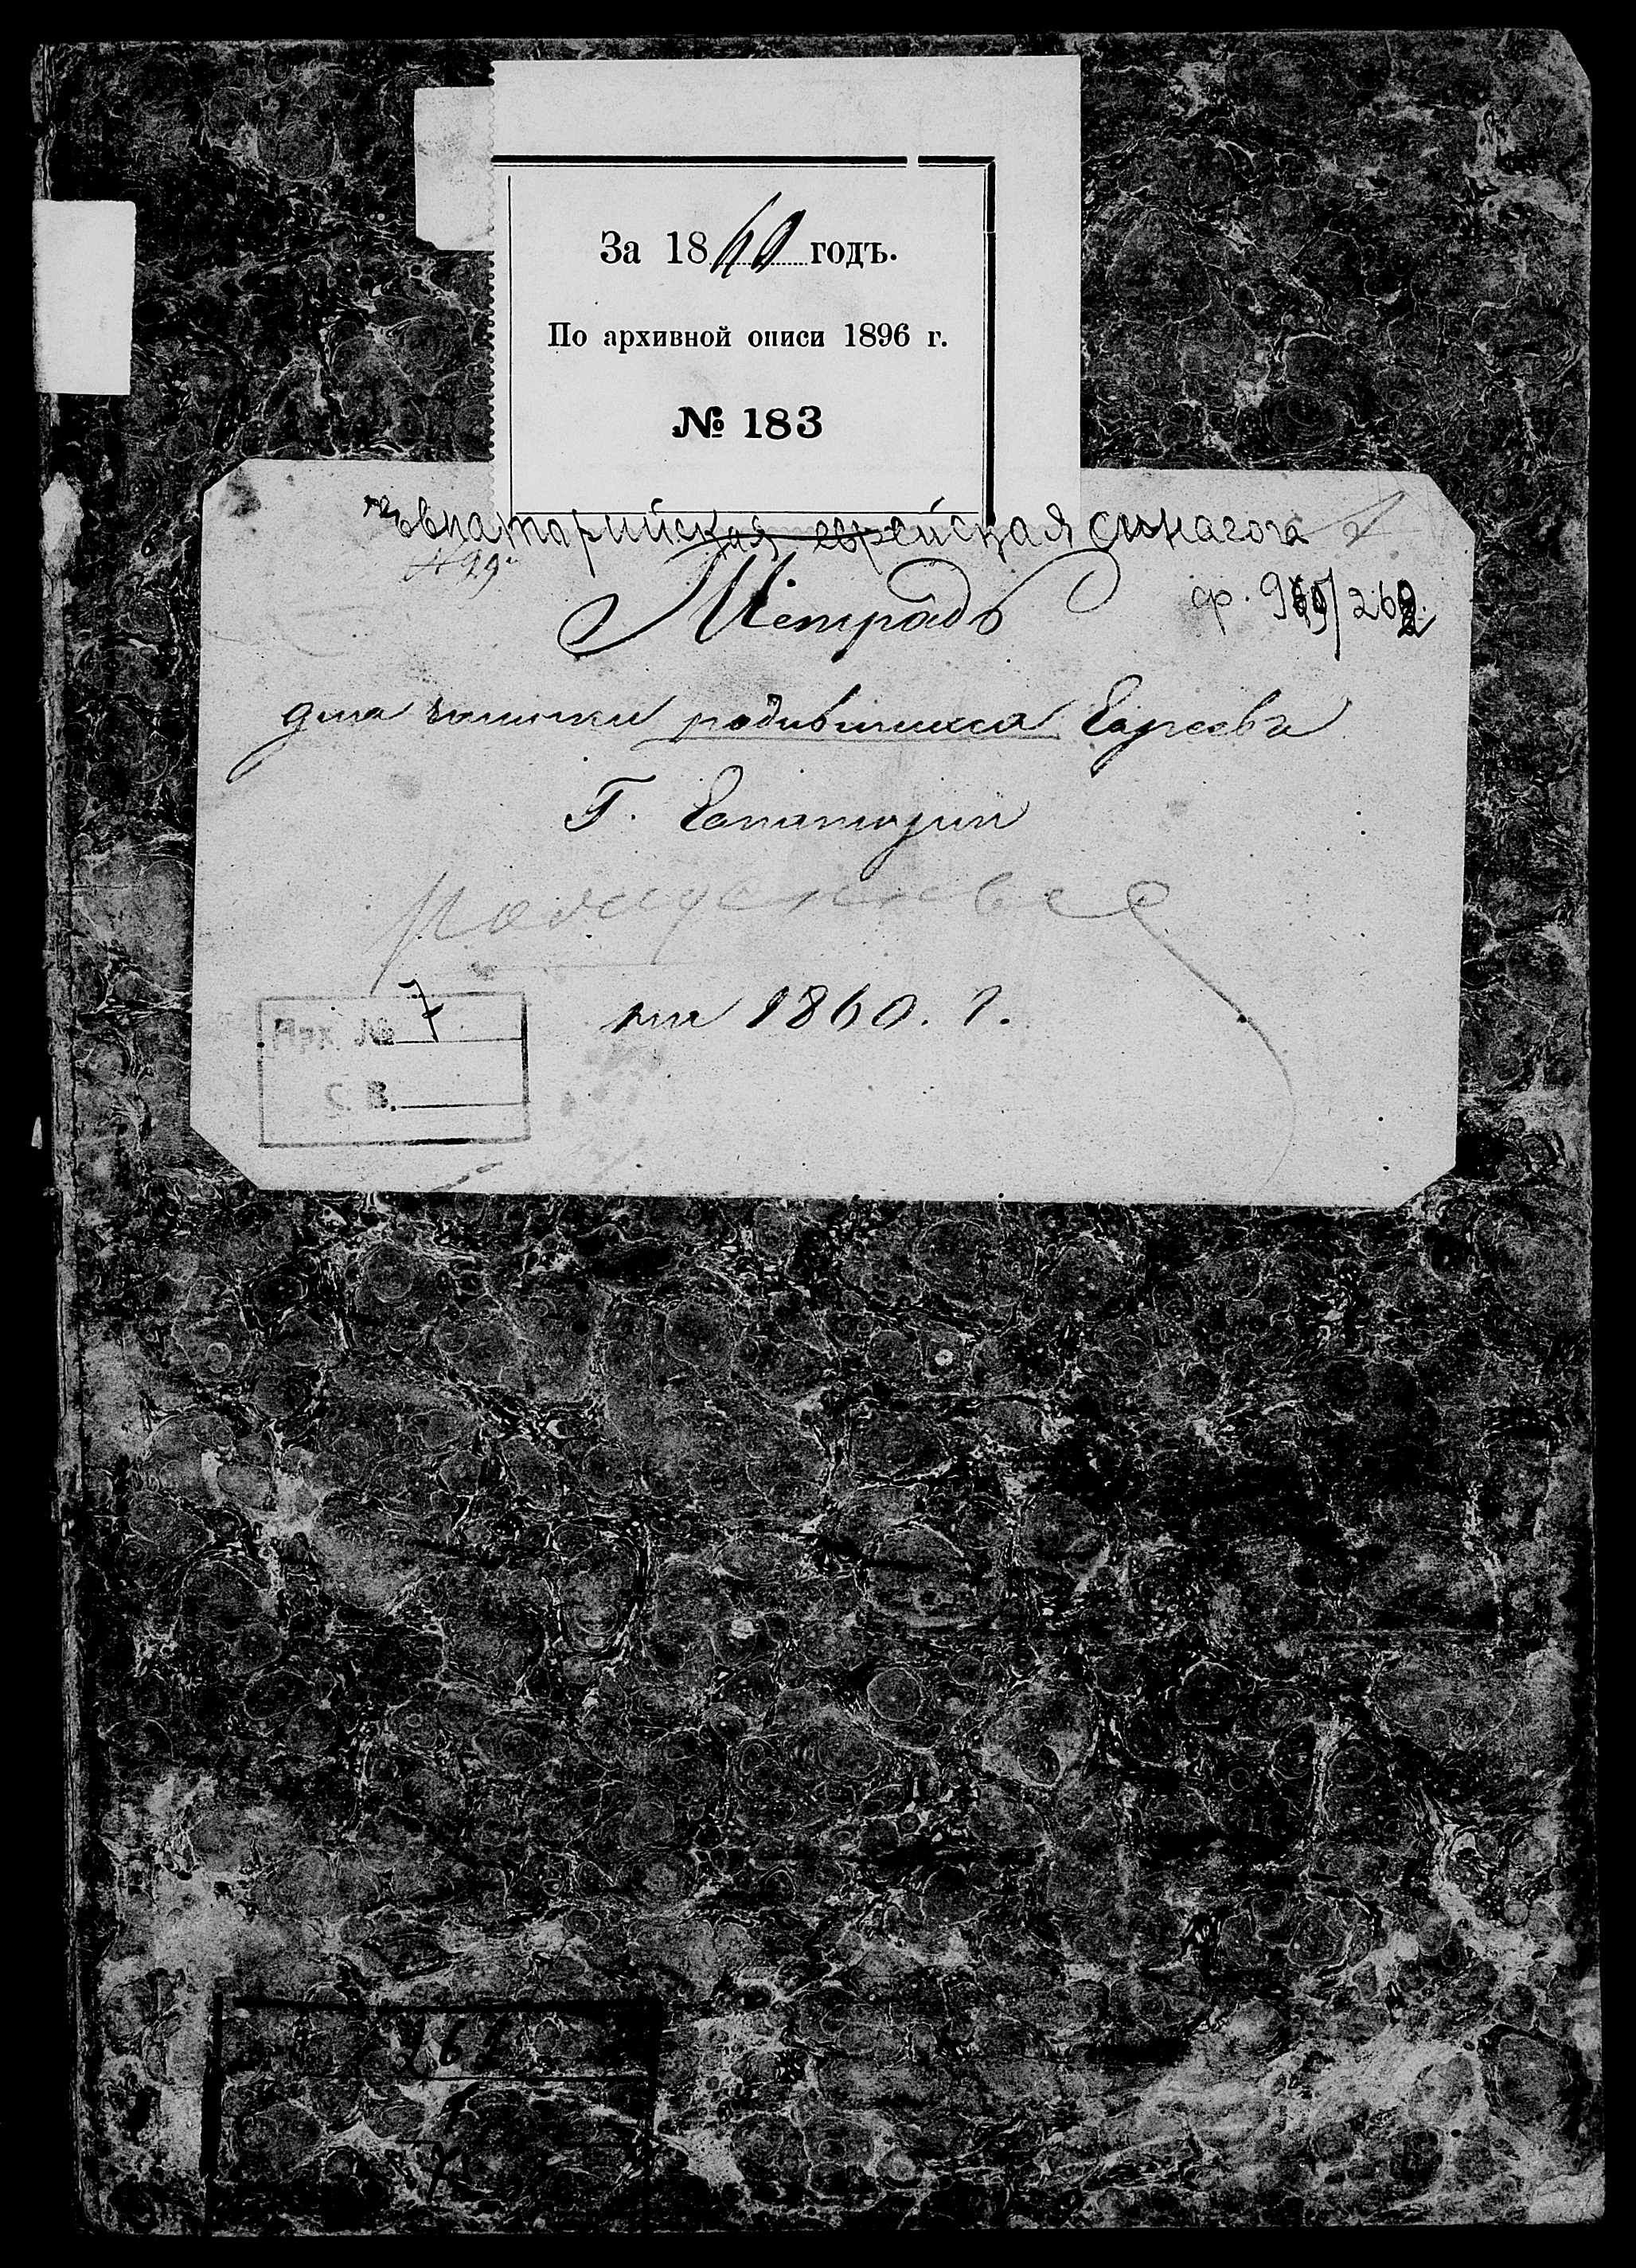 За 1860 годъ.
По архивной описи 1896 г.
№ 183
Евпаторийская еврейская синагога
№ 99
Тетрадь
ф. 262
для записки родившихся Евреевъ
Г. Евпаторіи
рожденные
на 1860. г.
Арх. № 7
С. В.
262
1
7